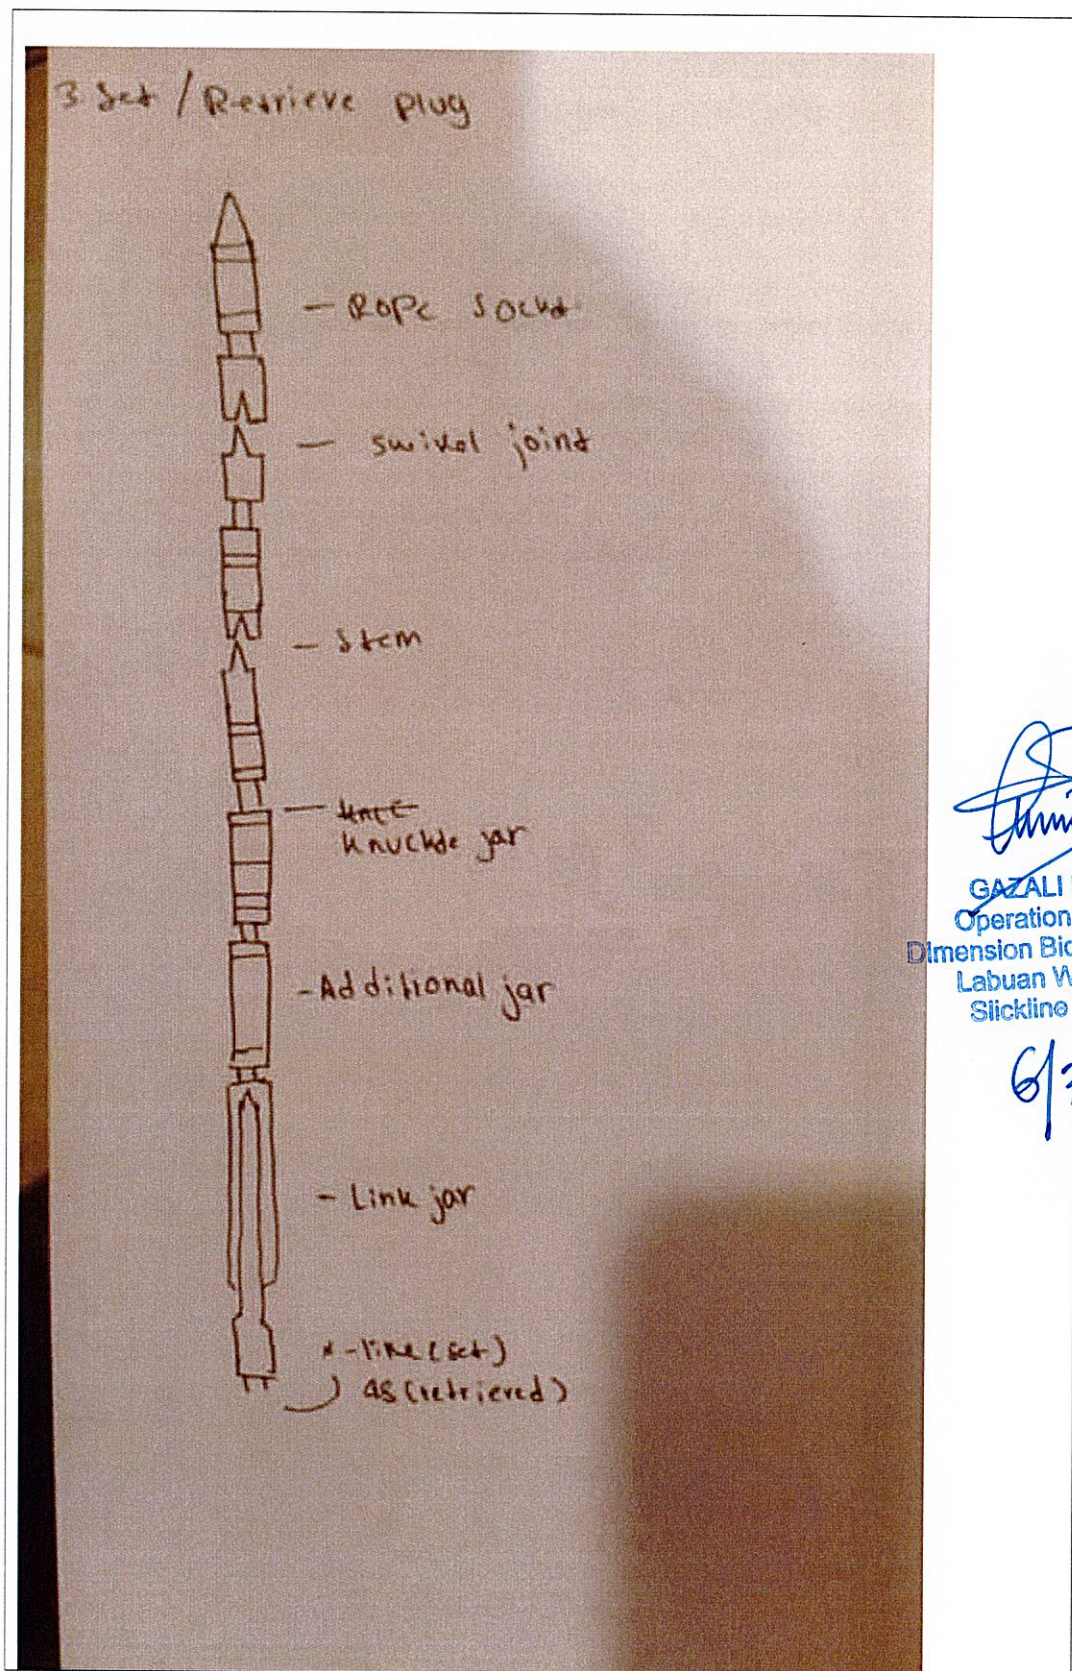 3. Set / Retrieve plug
- Rope socket
- swivel joint
- Stem
- Knuckle jar
- Additional jar
- Link jar
x-line (set)
GS (retrieved)
GAZALI
Operation
Dimension Bid
Labuan W
Slickline
6/